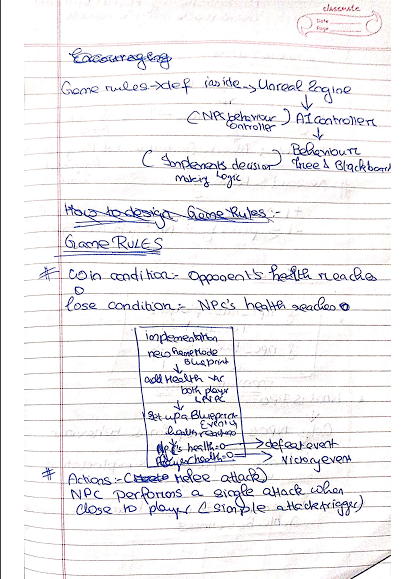 classmate
Date
Page
Encouraging
Game rules → def inside → Unreal Engine
(NPC behaviour controller) AI controller
Behaviour Tree & Blackboard
(Implements decision making logic
How to design Game Rules:-
GAME RULES
# Win condition:- Opponent's health reaches
0
lose condition:- NPC's health reaches 0
Implementation
new GameMode
Blueprint
add Health var
both player
& NPC
set up a Blueprint
Event if
health reaches 0
NPC's health=0 → defeat event
Player health=0 → Victory event
# Actions:- (Melee attack)
NPC performs a single attack when
close to player (simple attack trigger)